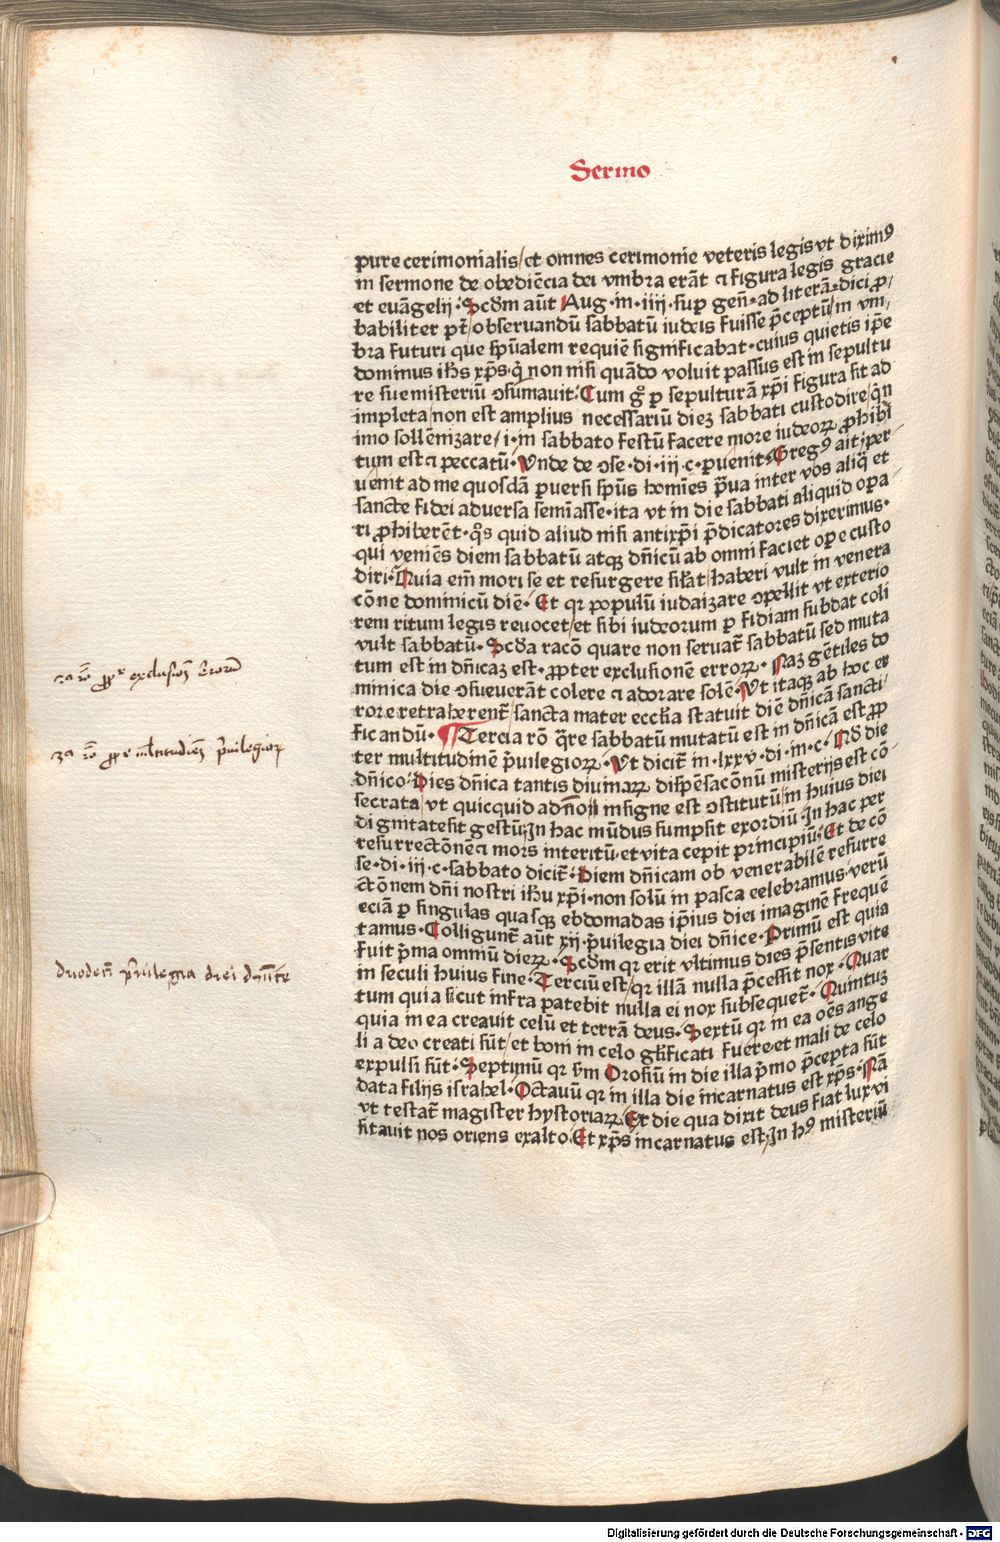 Sermo
pure cerimonialis/et omnes cerimonie veteris legis vt diximꝰ
in sermone de obediēcia dei vmbra erāt ⁊ figura legis gracie
et euāgelij. Scdm aūt Aug. in. iiij. sup̲ gen̄. ad literā. dici ꝓ/
babiliter pt̄ obseruandū sabbatū iudeis fuisse p̄ceptū/in vm/
bra futuri que sp̄ualem requiē significabat. cuius quietis ip̄e
dominus ih̄s xp̄s. q̇ non nisi quādo voluit passus est in sepultu
re sue misteriū ꝯsumauit. Cum gͦ ꝑ sepulturā xp̄i figura sit ad
impleta/non est amplius necessariū dieꝫ sabbati custodire/q̄n
imo sollēnizare/i. in sabbato festū facere more iudeoꝝ ꝓhibi
tum est ⁊ peccatū. Vnde de ꝯse. di. iij. c. ꝑuenit. Gregꝰ ait; per
uenit ad me quosdā ꝑuersi sp̄us homīes p̄ua inter vos aliq̄ et
sancte fidei aduersa semīasse. ita vt in die sabbati aliquid oꝑa
ri ꝓhiberēt. q̊s quid aliud nisi antixp̄i p̄dicatores dixerimus.
qui veniēs diem sabbatū atqꝫ dn̄icū ab omni faciet oꝑe custo
diri. Quia em̄ mori se et resurgere sil̄at/haberi vult in venera
cōne dominicū diē. Et qꝛ populū iudaizare ꝯpellit vt exterio
rem ritum legis reuocet/et sibi iudeorum ꝑfidiam subdat coli
vult sabbatū. Scd̄a racō quare non seruat̄ sabbatū sed muta
tum est in dn̄icaꝫ est. ꝓpter exclusionē erroꝝ. Naꝫ gētiles do
minica die ꝯsueuerāt colere ⁊ adorare solē. Vt itaqꝫ ab hoc er
rore retraherent̄/sancta mater eccl̄ia statuit diē dn̄icā sancti/
ficandū. Tercia rō q̄re sabbatū mutatū est in dn̄icā est ꝓp
ter multitudinē p̄uilegioꝝ. Vt dicit̄ in. lxxv. di. in. c. Qd̄ die
dn̄ico. Dies dn̄ica tantis diuinaꝝ dispēsacōnū misterijs est cō
secrata/vt quicquid a dn̄o insigne est ꝯstitutū/in huius diei
dignitate sit gestū; In hac mūdus sumpsit exordiū. In hac per
resurrectōnē ⁊ mors interitū. et vita cepit principiū. Et de cō
se. di. iij. c. sabbato dicit̄. Diem dn̄icam ob venerabilē resurre
ctōnem dn̄i nostri ih̄u xp̄i. non solū in pasca celebramus. verū
eciā ꝑ singulas quasqꝫ ebdomadas ip̄ius diei imaginē frequē
tamus. Colligunt̄ aūt xij. p̄uilegia diei dn̄ice. Primū est quia
fuit p̄ma omniū dieꝝ. Scdm qꝛ erit vltimus dies p̄sentis vite
in seculi huius fine. Terciū est/qꝛ illā nulla p̄cessit nox. Quar
tum quia sicut infra patebit nulla ei nox subsequet̄. Quintuꝫ
quia in ea creauit celū et terrā deus. Sextū qꝛ in ea oēs ange
li a deo creati sūt/et boni in celo gl̄ificati fuere. et mali de celo
expulsi sūt. Septimū qꝛ sm̄ Orosiū in die illa p̄mo p̄cepta sūt
data filijs israhel. Octauū qꝛ in illa die incarnatus est xp̄s. Nā
vt testat̄ magister hystoriaꝝ. Ex die qua dixit deus fiat lux. vi
sitauit nos oriens ex alto. Et xp̄s incarnatus est; In hꝰ misteriū
2ᵃ rō ꝓpᵗ exclusionē erroꝝ
3ᵃ rō ꝓpᵗ multitudīeꝫ p̄uilegioꝝ
duodecī p̄uilegia diei dn̄ice
Digitalisierung gefördert durch die Deutsche Forschungsgemeinschaft - DFG